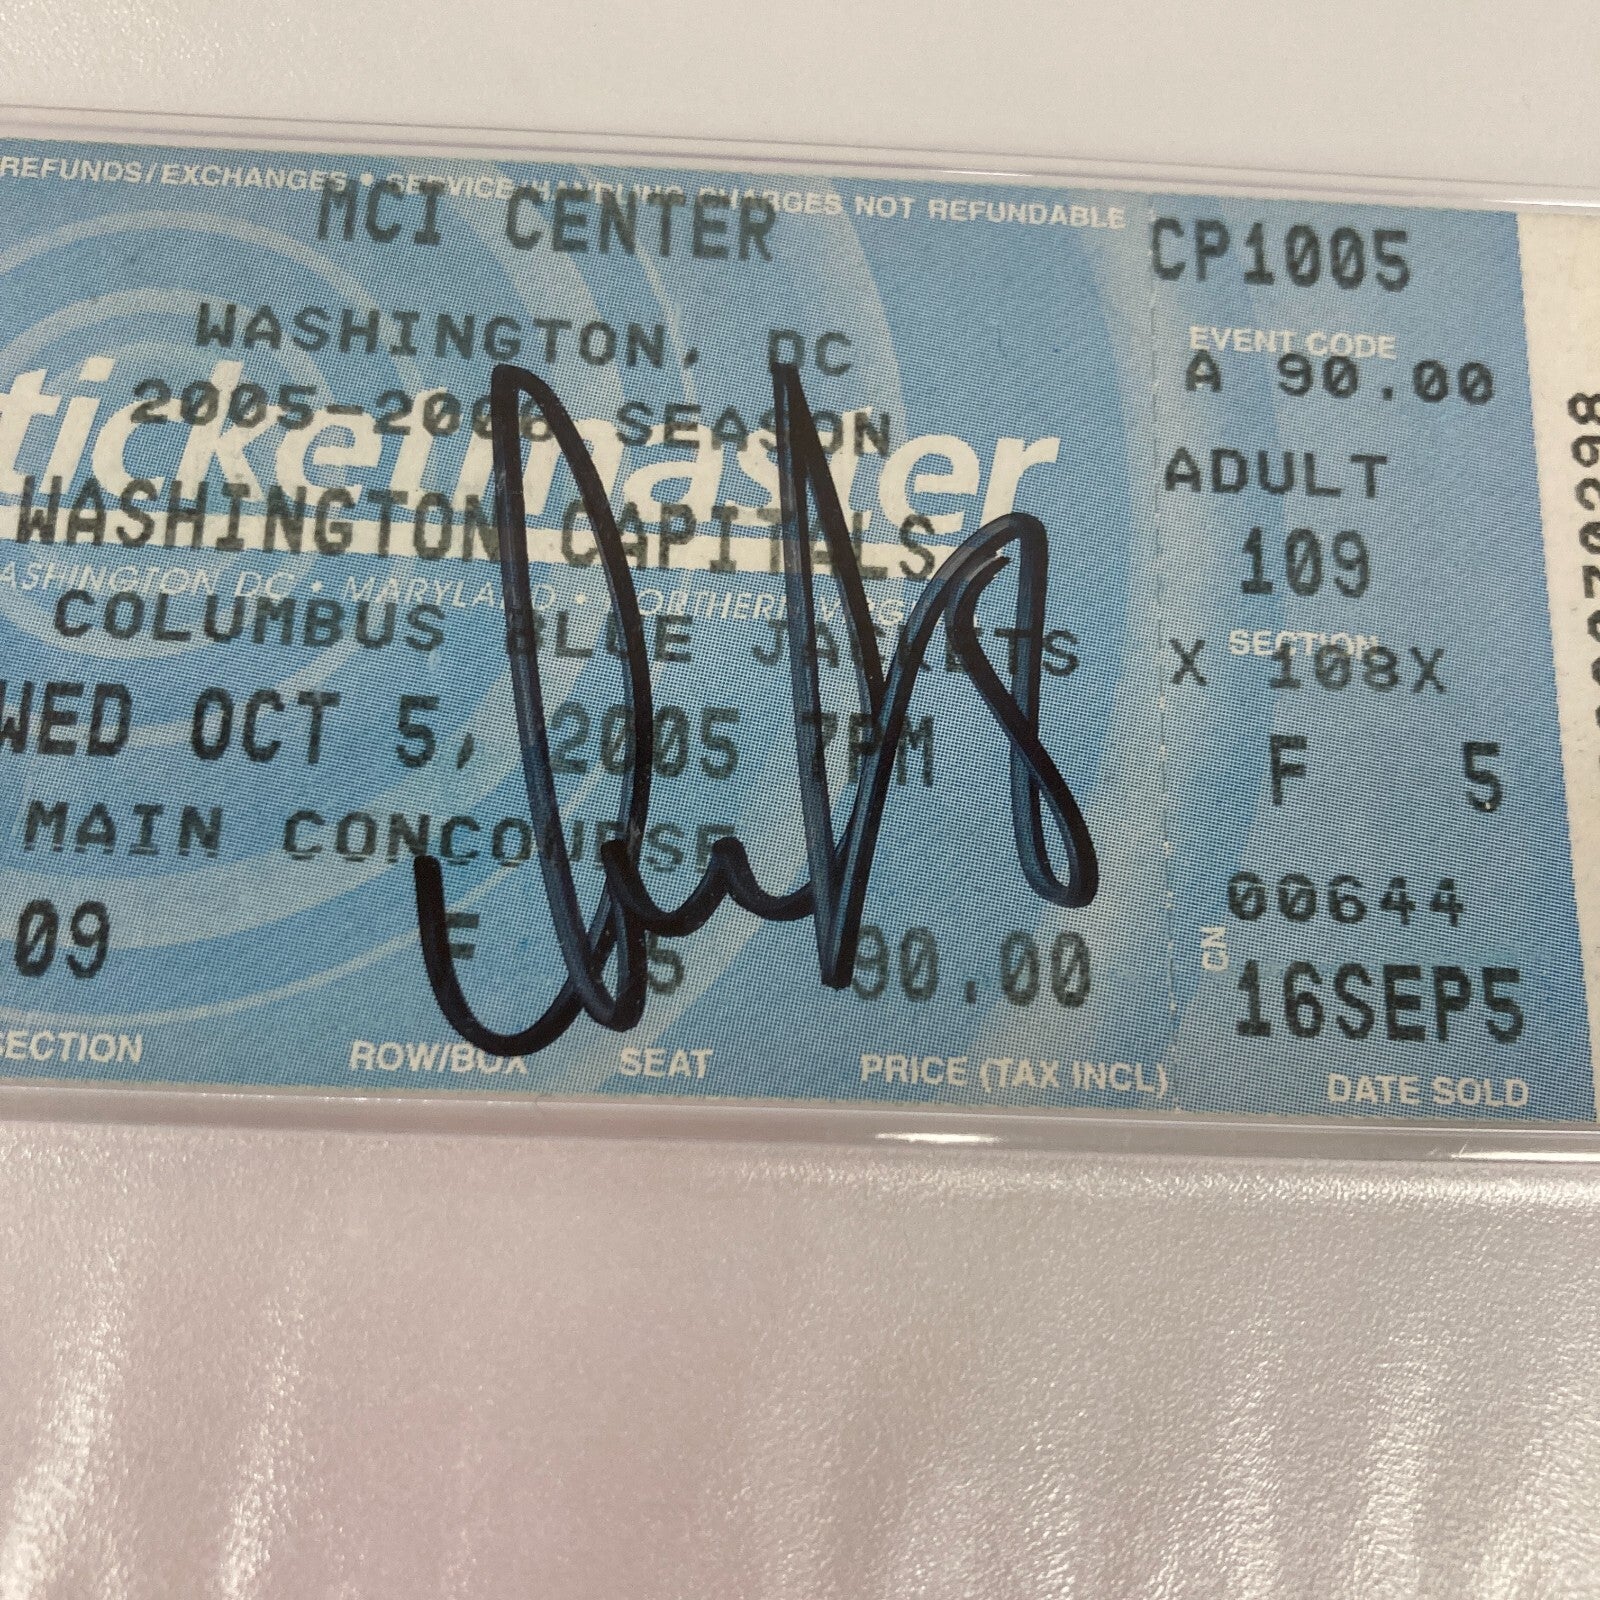 REFUNDS/EXCHANGES • SERVICE/HANDLING CHARGES NOT REFUNDABLE
MCI CENTER
WASHINGTON, DC
ticketmaster
2005-2006 SEASON
WASHINGTON CAPITALS
ASHINGTON DC • MARYLAND • NORTHERN VIRG
COLUMBUS BLUE JACKETS
WED OCT 5, 2005 7PM
MAIN CONCOURSE
09 F 5 90.00
SECTION ROW/BOX SEAT PRICE (TAX INCL)
CP1005
EVENT CODE
A 90.00
ADULT
109
SECTION
X 108X
F 5
00644
CN
16SEP5
DATE SOLD